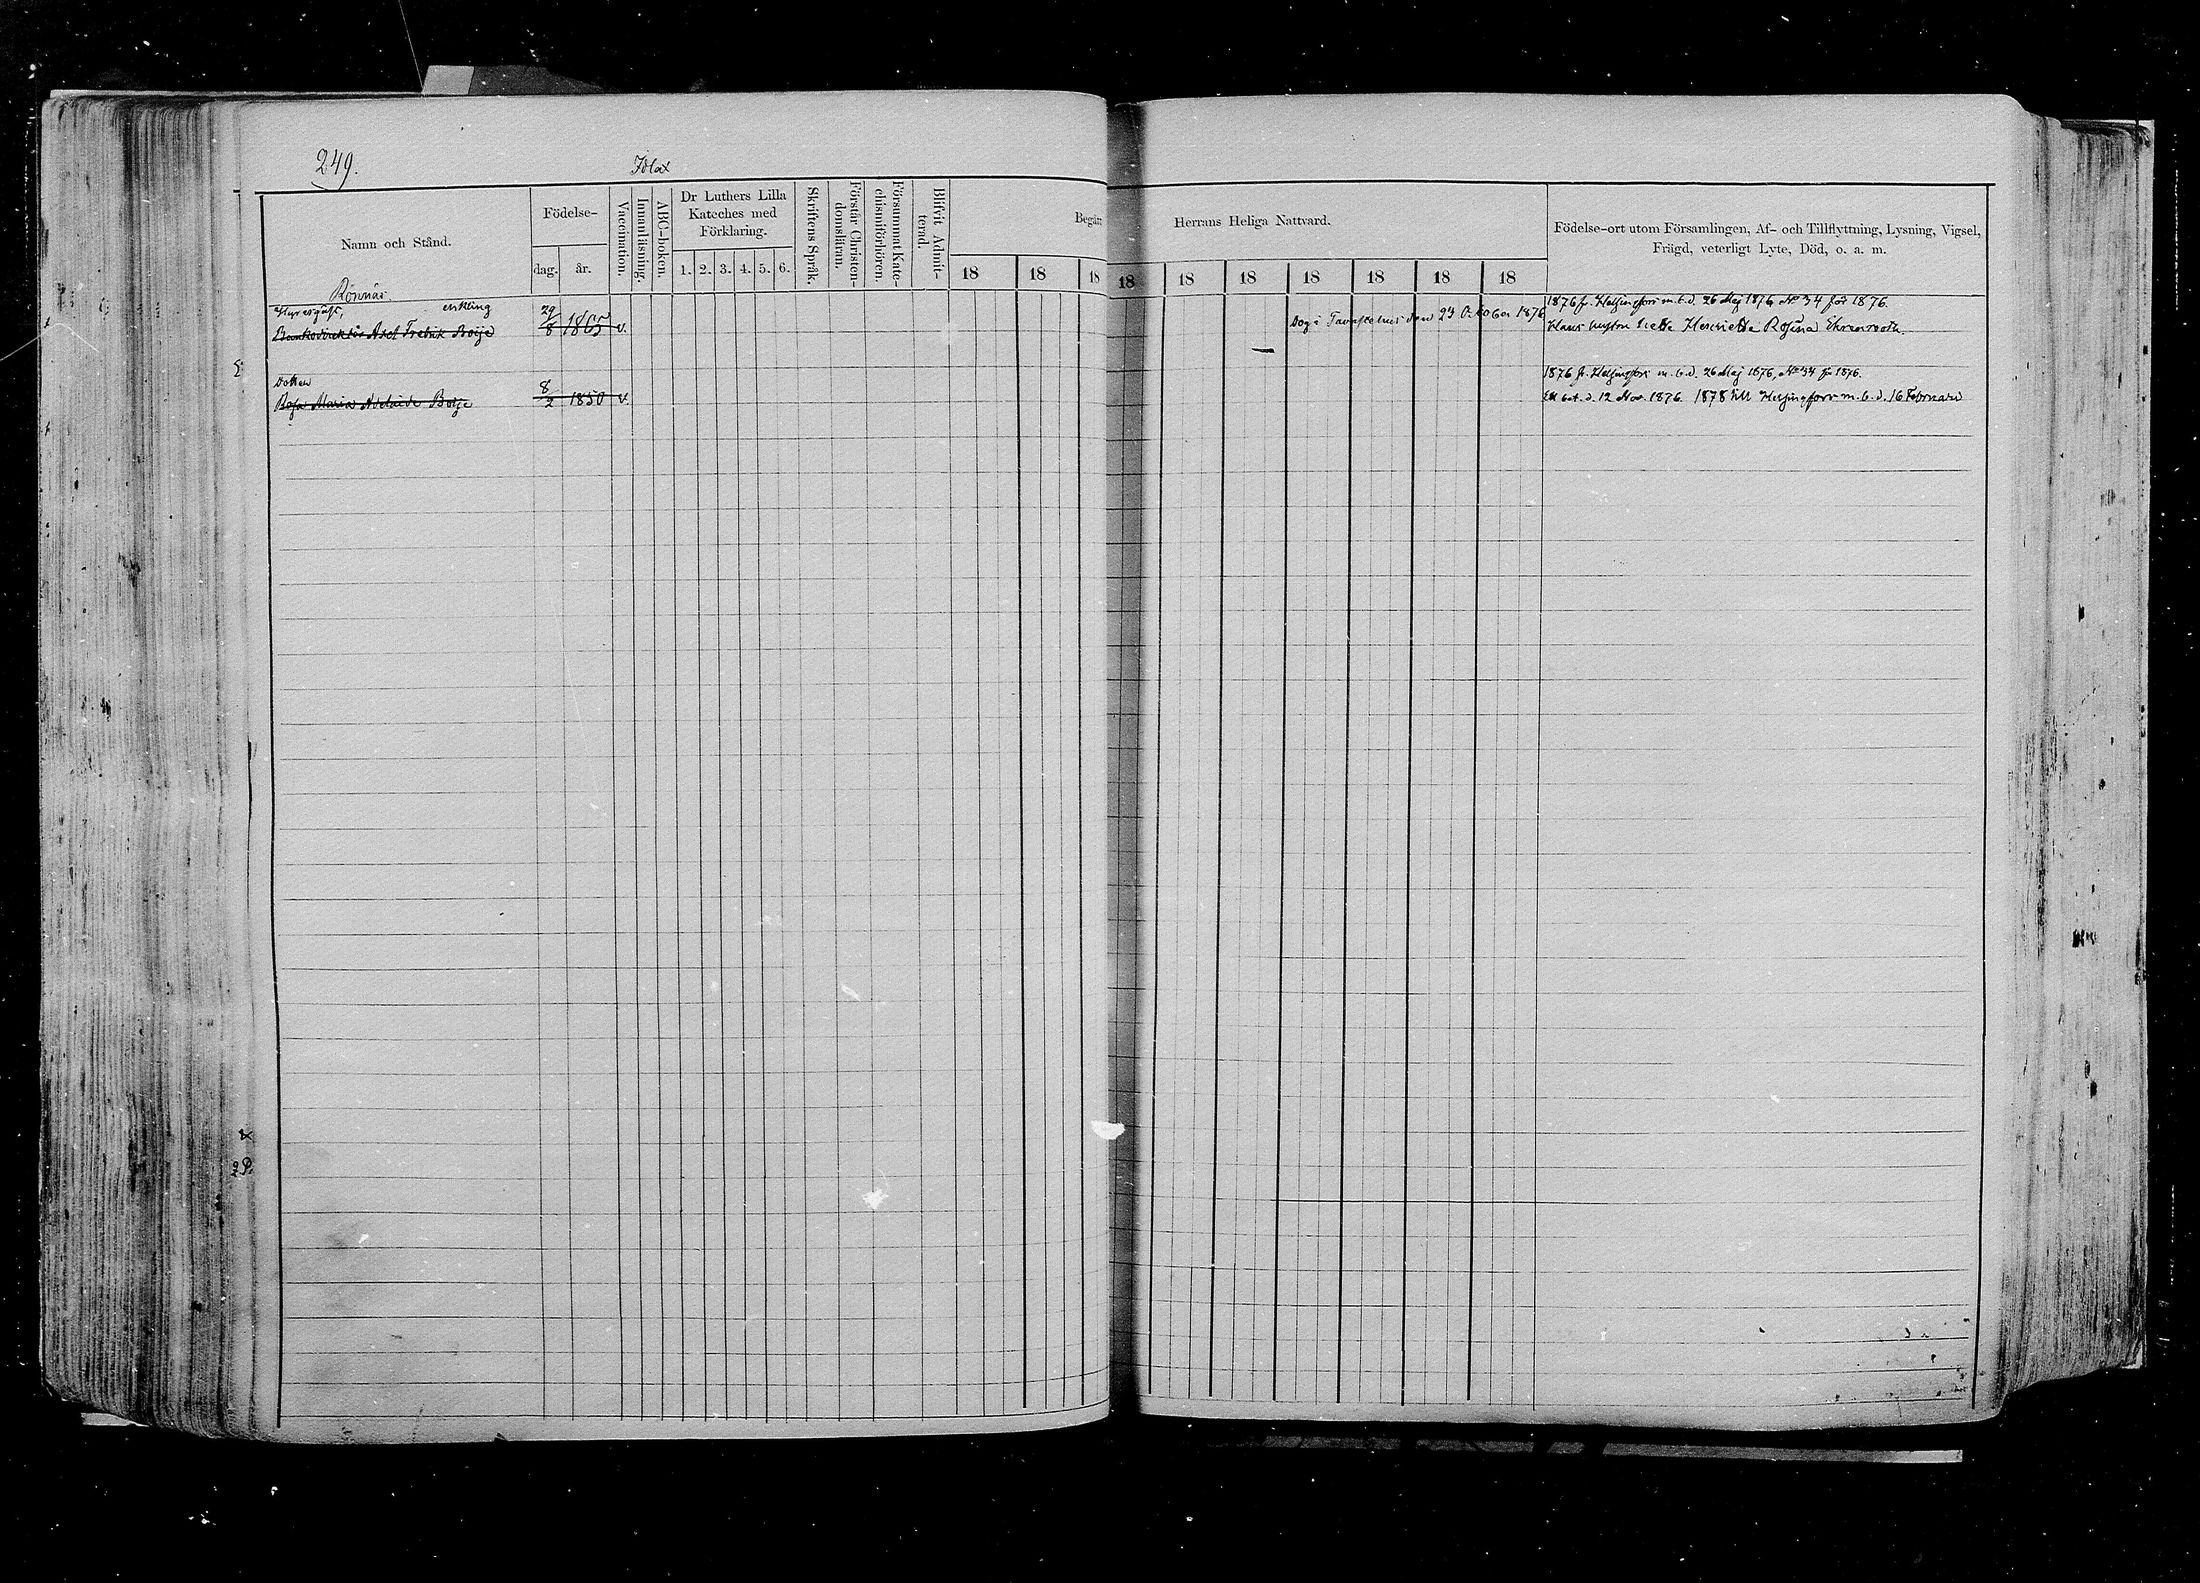 249.
Idlax
Namn och Stånd.
Födelse-
dag.
år.
Vaccination.
Innanläsning.
ABC-boken.
Dr Luthers Lilla
Kateches med
Förklaring.
1. 2. 3. 4. 5. 6.
Skriftens Språk.
Förstår Christen-
domsläran.
Försummat Kate-
chismiförhören.
Blifvit Admit-
terad.
Begått
18 18 18
Herrans Heliga Nattvard.
18 18 18 18 18 18 18
Födelse-ort utom Församlingen, Af- och Tillflyttning, Lysning, Vigsel,
Frägd, veterligt Lyte, Död, o. a. m.
Rönnäs.
Hyresgäst, enkling
Bankodirektör Axel Fredrik Boije
29/8 v.
Dog i Tavastehus den 23 October 1876
1876 fr. Helsingfors m. b. d. 26 Maj 1876, No 34 för 1876.
Hans hustru hette Henrietta Rosina Ehrenrooth.
Dotter
Rosa Maria Adelaide Boije
8/2 1850 v.
1876 fr. Helsingfors m. b. d. 26 Maj 1876, No 34 för 1876.
bet. d. 12 Nov. 1876. 1878 till Helsingfors m. b. d. 16 Februari